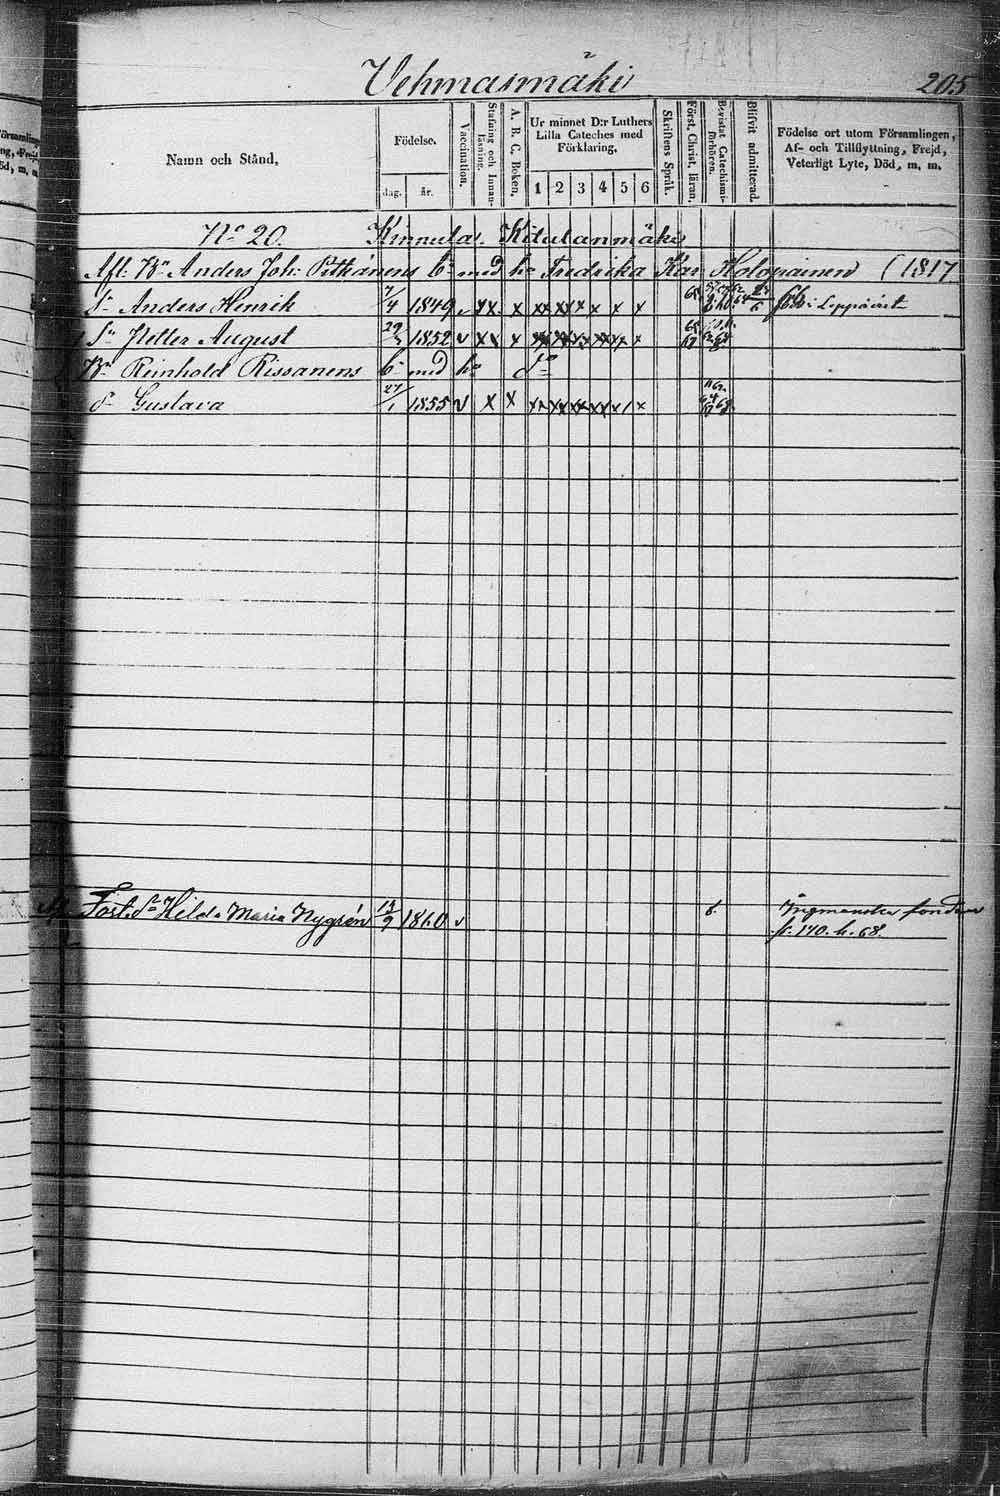 Vehmasmäki 205
Namn och Stånd,
Födelse.
dag. år.
Vaccination.
Stafning och Innanläsning.
A. B. C. Boken.
Ur minnet D:r Luthers Lilla Cateches med Förklaring,
1 2 3 4 5 6
Skriftens Språk.
Först. Christ. läran.
Bevistat Catechismiförhören.
Blifvit admitterad.
Födelse ort utom Församlingen,
Af- och Tillflyttning, Frejd,
Veterligt Lyte, Död, m. m.
No 20. Kinnula. Kitulanmäki
Afl. Bn Anders Joh: Pitkänens bn med ho Fredrika Kar. Holopainen (1817
Sn Anders Henrik 7/4 1849 v x x x x x x x x x 65
Sn Petter August 29 1852 v x x x x x x x x x 65 67
Bn Reinhold Rissanens bn med ho do
dr Gustava 27/1 1855 v x x x x x x x x
Fost. dr Hilda Maria Nygrén 13/9 1860 v b. Ingmanska fonden
fr. 170. h. 68.